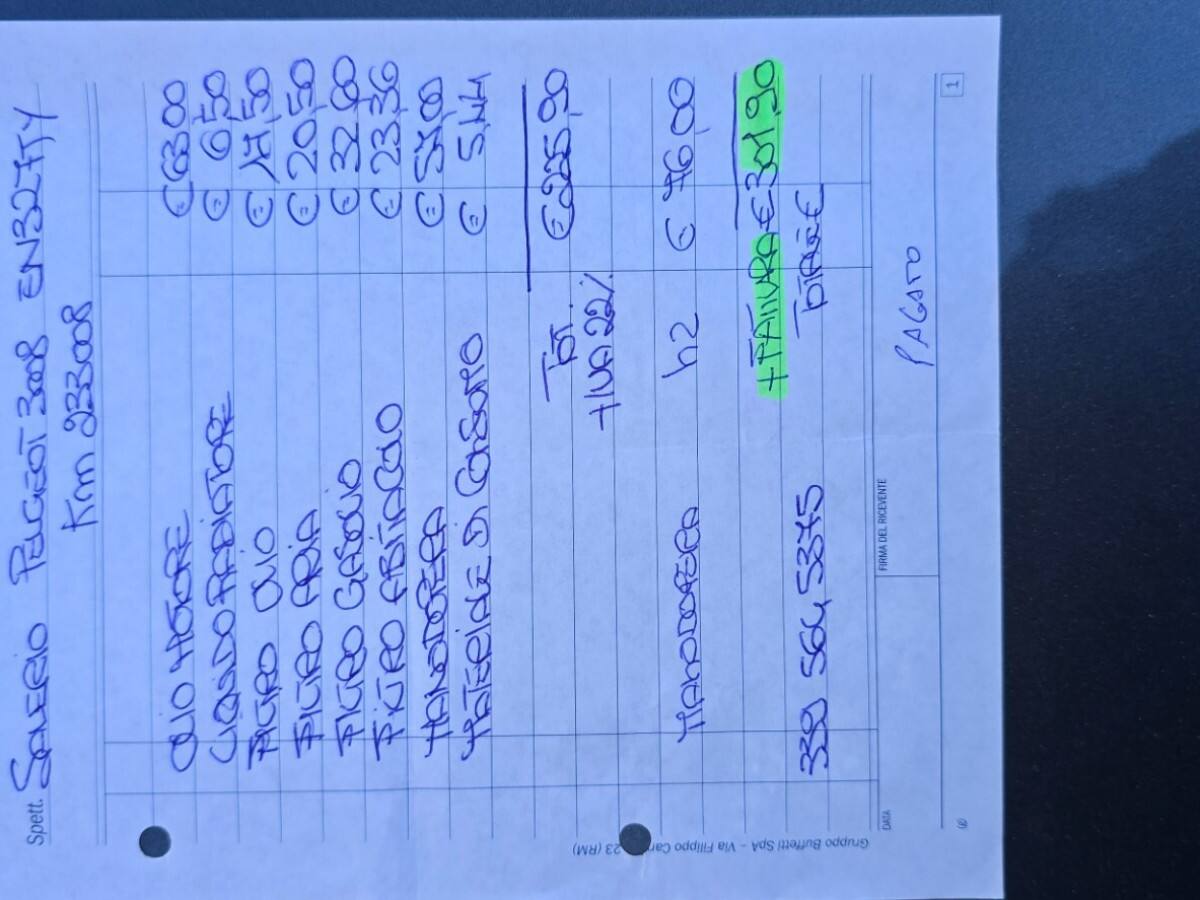 Spett. SAVERIO PEUGEOT 3008 EN327TY
Km 233008
OLIO MOTORE € 63,00
LIQUIDO RADIATORE € 6,50
FILTRO OLIO € 17,50
FILTRO ARIA € 20,50
FILTRO GASOLIO € 32,00
FILTRO ABITACOLO € 23,36
MANODOPERA € 57,00
MATERIALE DI CONSUMO € 5,44
TOT. € 225,90
+ IVA 22%
MANODOPERA h2 € 76,00
+ FATTURA € 301,90
339 564 5375 TOTALE €
DATA
FIRMA DEL RICEVENTE
PAGATO
1
Gruppo Buffetti SpA - Via Filippo Car 23 (RM)